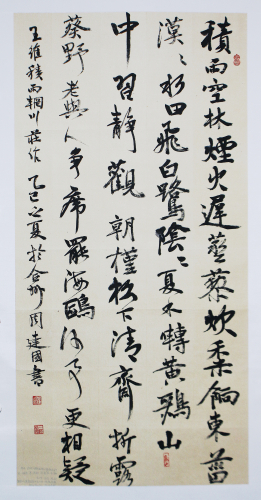 積雨空林煙火遲蒸藜炊黍餉東菑
漠〻水田飛白鷺陰〻夏木囀黃鸝山
中習靜觀朝槿松下清齋折露
葵野老與人爭席罷海鷗何事更相疑
王維積雨輞川莊作 乙巳之夏於合州周建國書